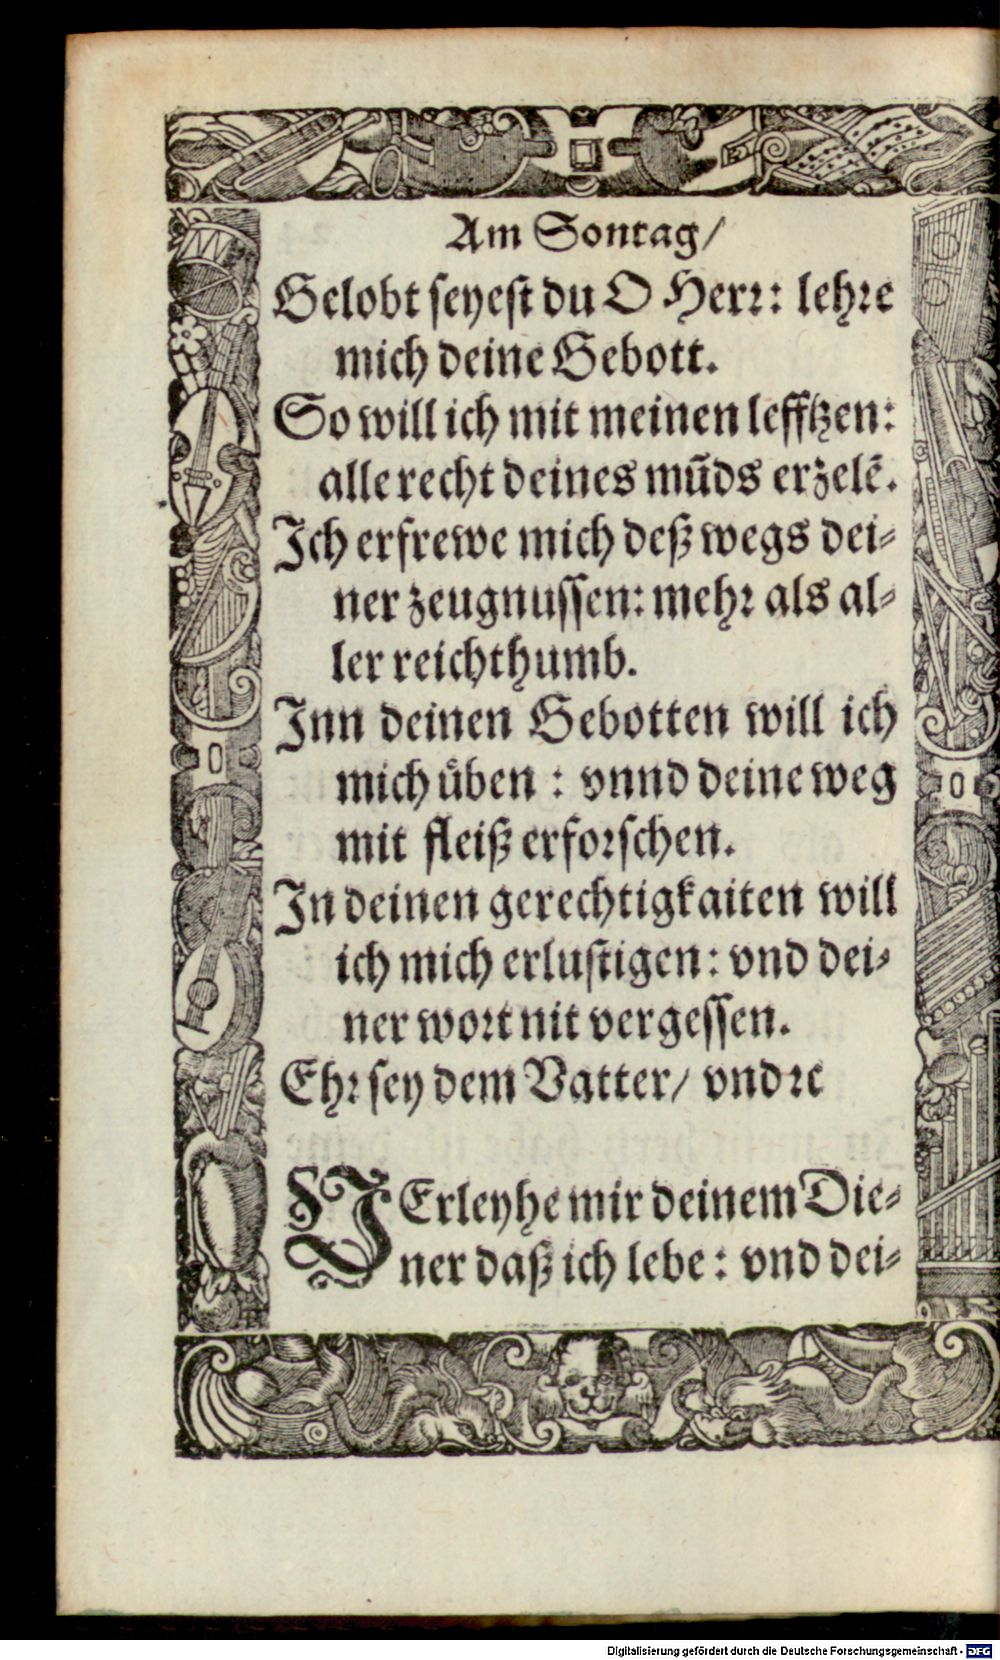 Am Sontag/
Gelobt seyest du O Herr: lehre
mich deine Gebott.
So will ich mit meinen lefftzen:
alle recht deines mūds erzelē.
Ich erfrewe mich deß wegs dei⸗
ner zeugnussen: mehr als al⸗
ler reichthumb.
Inn deinen Gebotten will ich
mich üben : vnnd deine weg
mit fleiß erforschen.
In deinen gerechtigkaiten will
ich mich erlustigen: vnd dei⸗
ner wort nit vergessen.
Ehr sey dem Vatter/ vnd ꝛc
VErleyhe mir deinem Die⸗
ner daß ich lebe: vnd dei⸗
Digitalisierung gefördert durch die Deutsche Forschungsgemeinschaft - DFG